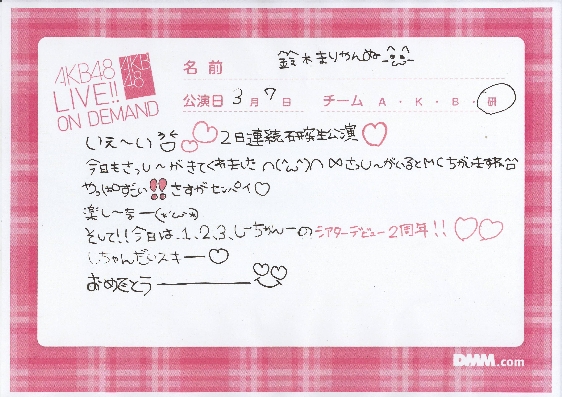 AKB48
LIVE!!
ON DEMAND
AKB
48
名前 鈴木まりやんぬ
公演日 3月7日 チーム A・K・B・研
いぇ〜い 2日連続研究生公演♡
今日もさっしーがきてくれました∩(^ω^)∩ さっしーがいるとMCちがいますね
やっぱすごい!!さすがセンパイ♡
楽し〜まー(*'ω'*)
そして!!今日は、1、2、3、しーちゃんーのシアターデビュー2周年!!♡♡
しちゃんだいスキー♡
おめでとう
DMM.com